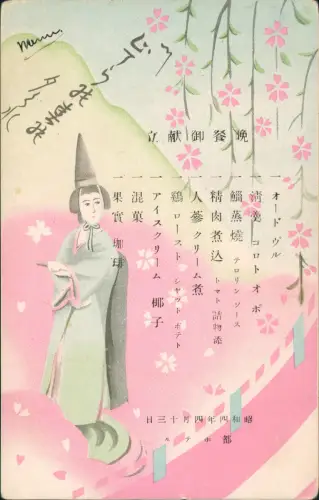 Menu
晩餐御献立
一 オードヴル
一 清羹 コロトオポ
一 鯛蒸燒 テロリン ソース
一 精肉煮込 トマト詰物添
一 人蔘クリーム煮
一 鶏ロースト シャット ポテト
一 アイスクリーム 椰子
一 混菓
一 果實 珈琲
昭和四年四月十三日
都ホテル